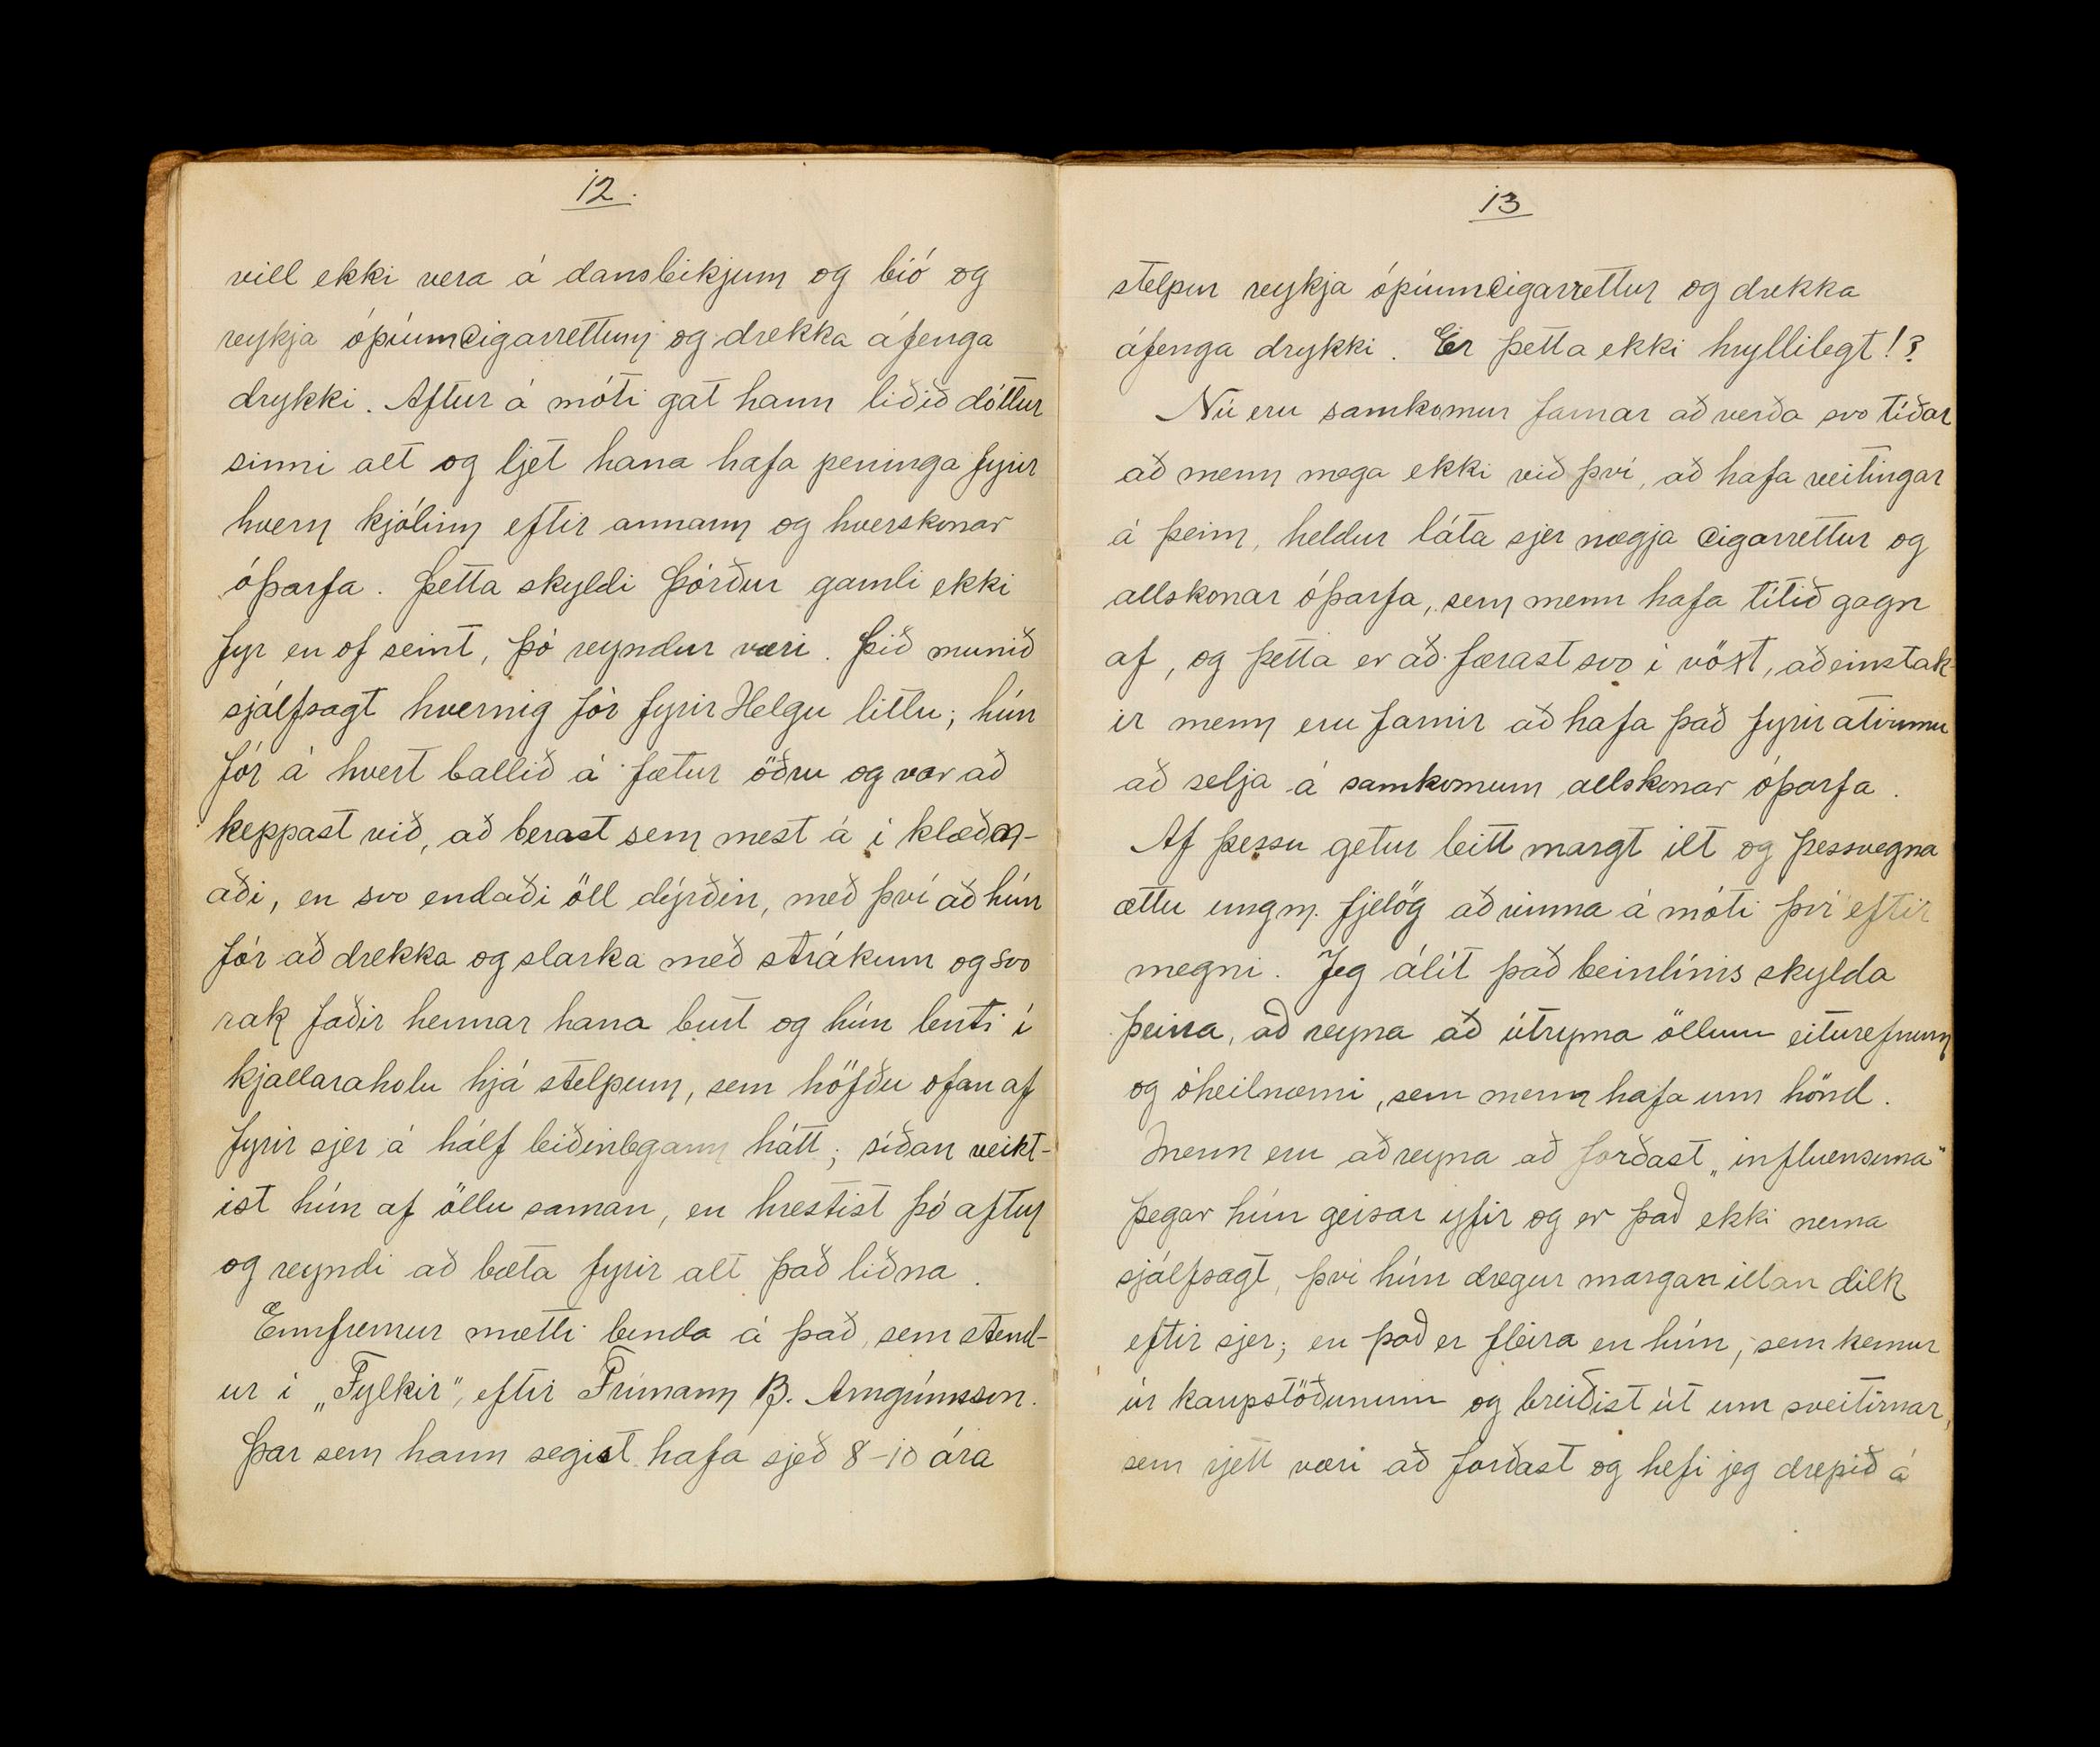 12.
vill ekki vera á dansleikjum og bíó og
reykja ópíumcigarrettum og drekka áfenga
drykki. Aftur á móti gat hann liðið dóttur
sinni alt og ljet hana hafa peninga fyrir
hvern kjólinn eftir annann og hverskonar
óþarfa. Þetta skyldi Þórður gamli ekki
fyr en of seint, þó reyndur væri. Þið munið
sjálfsagt hvernig fór fyrir Helgu litlu; hún
fór á hvert ballið á fætur öðru og var að
keppast við, að berast sem mest á í klæðn-
aði, en svo endaði öll dýrðin, með því að hún
fór að drekka og slarka með strákum og svo
rak faðir hennar hana burt og hún lenti í
kjallaraholu hjá stelpum, sem höfðu ofan af
fyrir sjer á hálf leiðinlegann hátt; síðan veikt-
ist hún af öllu saman, en hrestist þó aftur
og reyndi að bæta fyrir alt það liðna.
Ennfremur mætti benda á það, sem stend-
ur í „Fylkir", eftir Frímann B. Arngrímsson.
Þar sem hann segist hafa sjeð 8-10 ára
13
stelpur reykja ópíumcigarrettur og drekka
áfenga drykki. Er þetta ekki hryllilegt!?
Nú eru samkomur farnar að verða svo tíðar
að menn mega ekki við því, að hafa veitingar
á þeim, heldur láta sjer nægja cigarrettur og
allskonar óþarfa, sem menn hafa lítið gagn
af, og þetta er að færast svo í vöxt, að einstak-
ir menn eru farnir að hafa það fyrir atvinnu
að selja á samkomum allskonar óþarfa.
Af þessu getur leitt margt ilt og þessvegna
ættu ungm. fjelög að vinna á móti því eftir
megni. Jeg álít það beinlínis skylda
þeirra, að reyna að útrýma öllum eiturefnum
og óheilnæmi, sem menn hafa um hönd.
Menn eru að reyna að forðast „influensuna"
þegar hún geisar yfir og er það ekki nema
sjálfsagt, því hún dregur margan illan dilk
eftir sjer; en það er fleira en hún, sem kemur
úr kaupstöðunum og breiðist út um sveitirnar,
sem rjett væri að forðast og hefi jeg drepið á